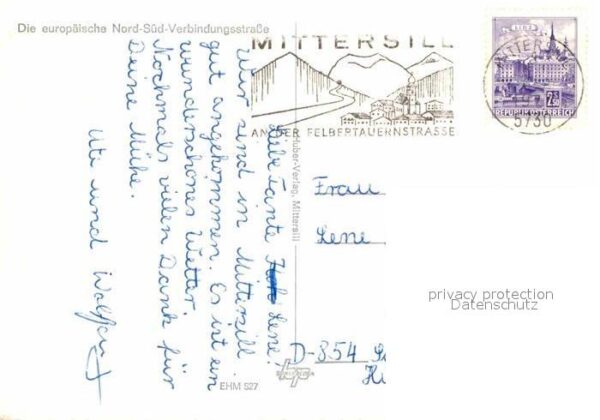 Die europäische Nord-Süd-Verbindungsstraße
MITTERSILL
AN DER FELBERTAUERNSTRASSE
MITTERSILL
5730
LINZ
2S
REPUBLIK ÖSTERREICH
Liebe Tante Lene!
Wir sind in Mittersill
gut angekommen. Es ist ein
wunderschönes Wetter
Nochmals vielen Dank für
Deine Mühe.
Ute und Wolfgang
Huber-Verlag, Mittersill
Frau
Lene
D-854
EHM 527
privacy protection
Datenschutz